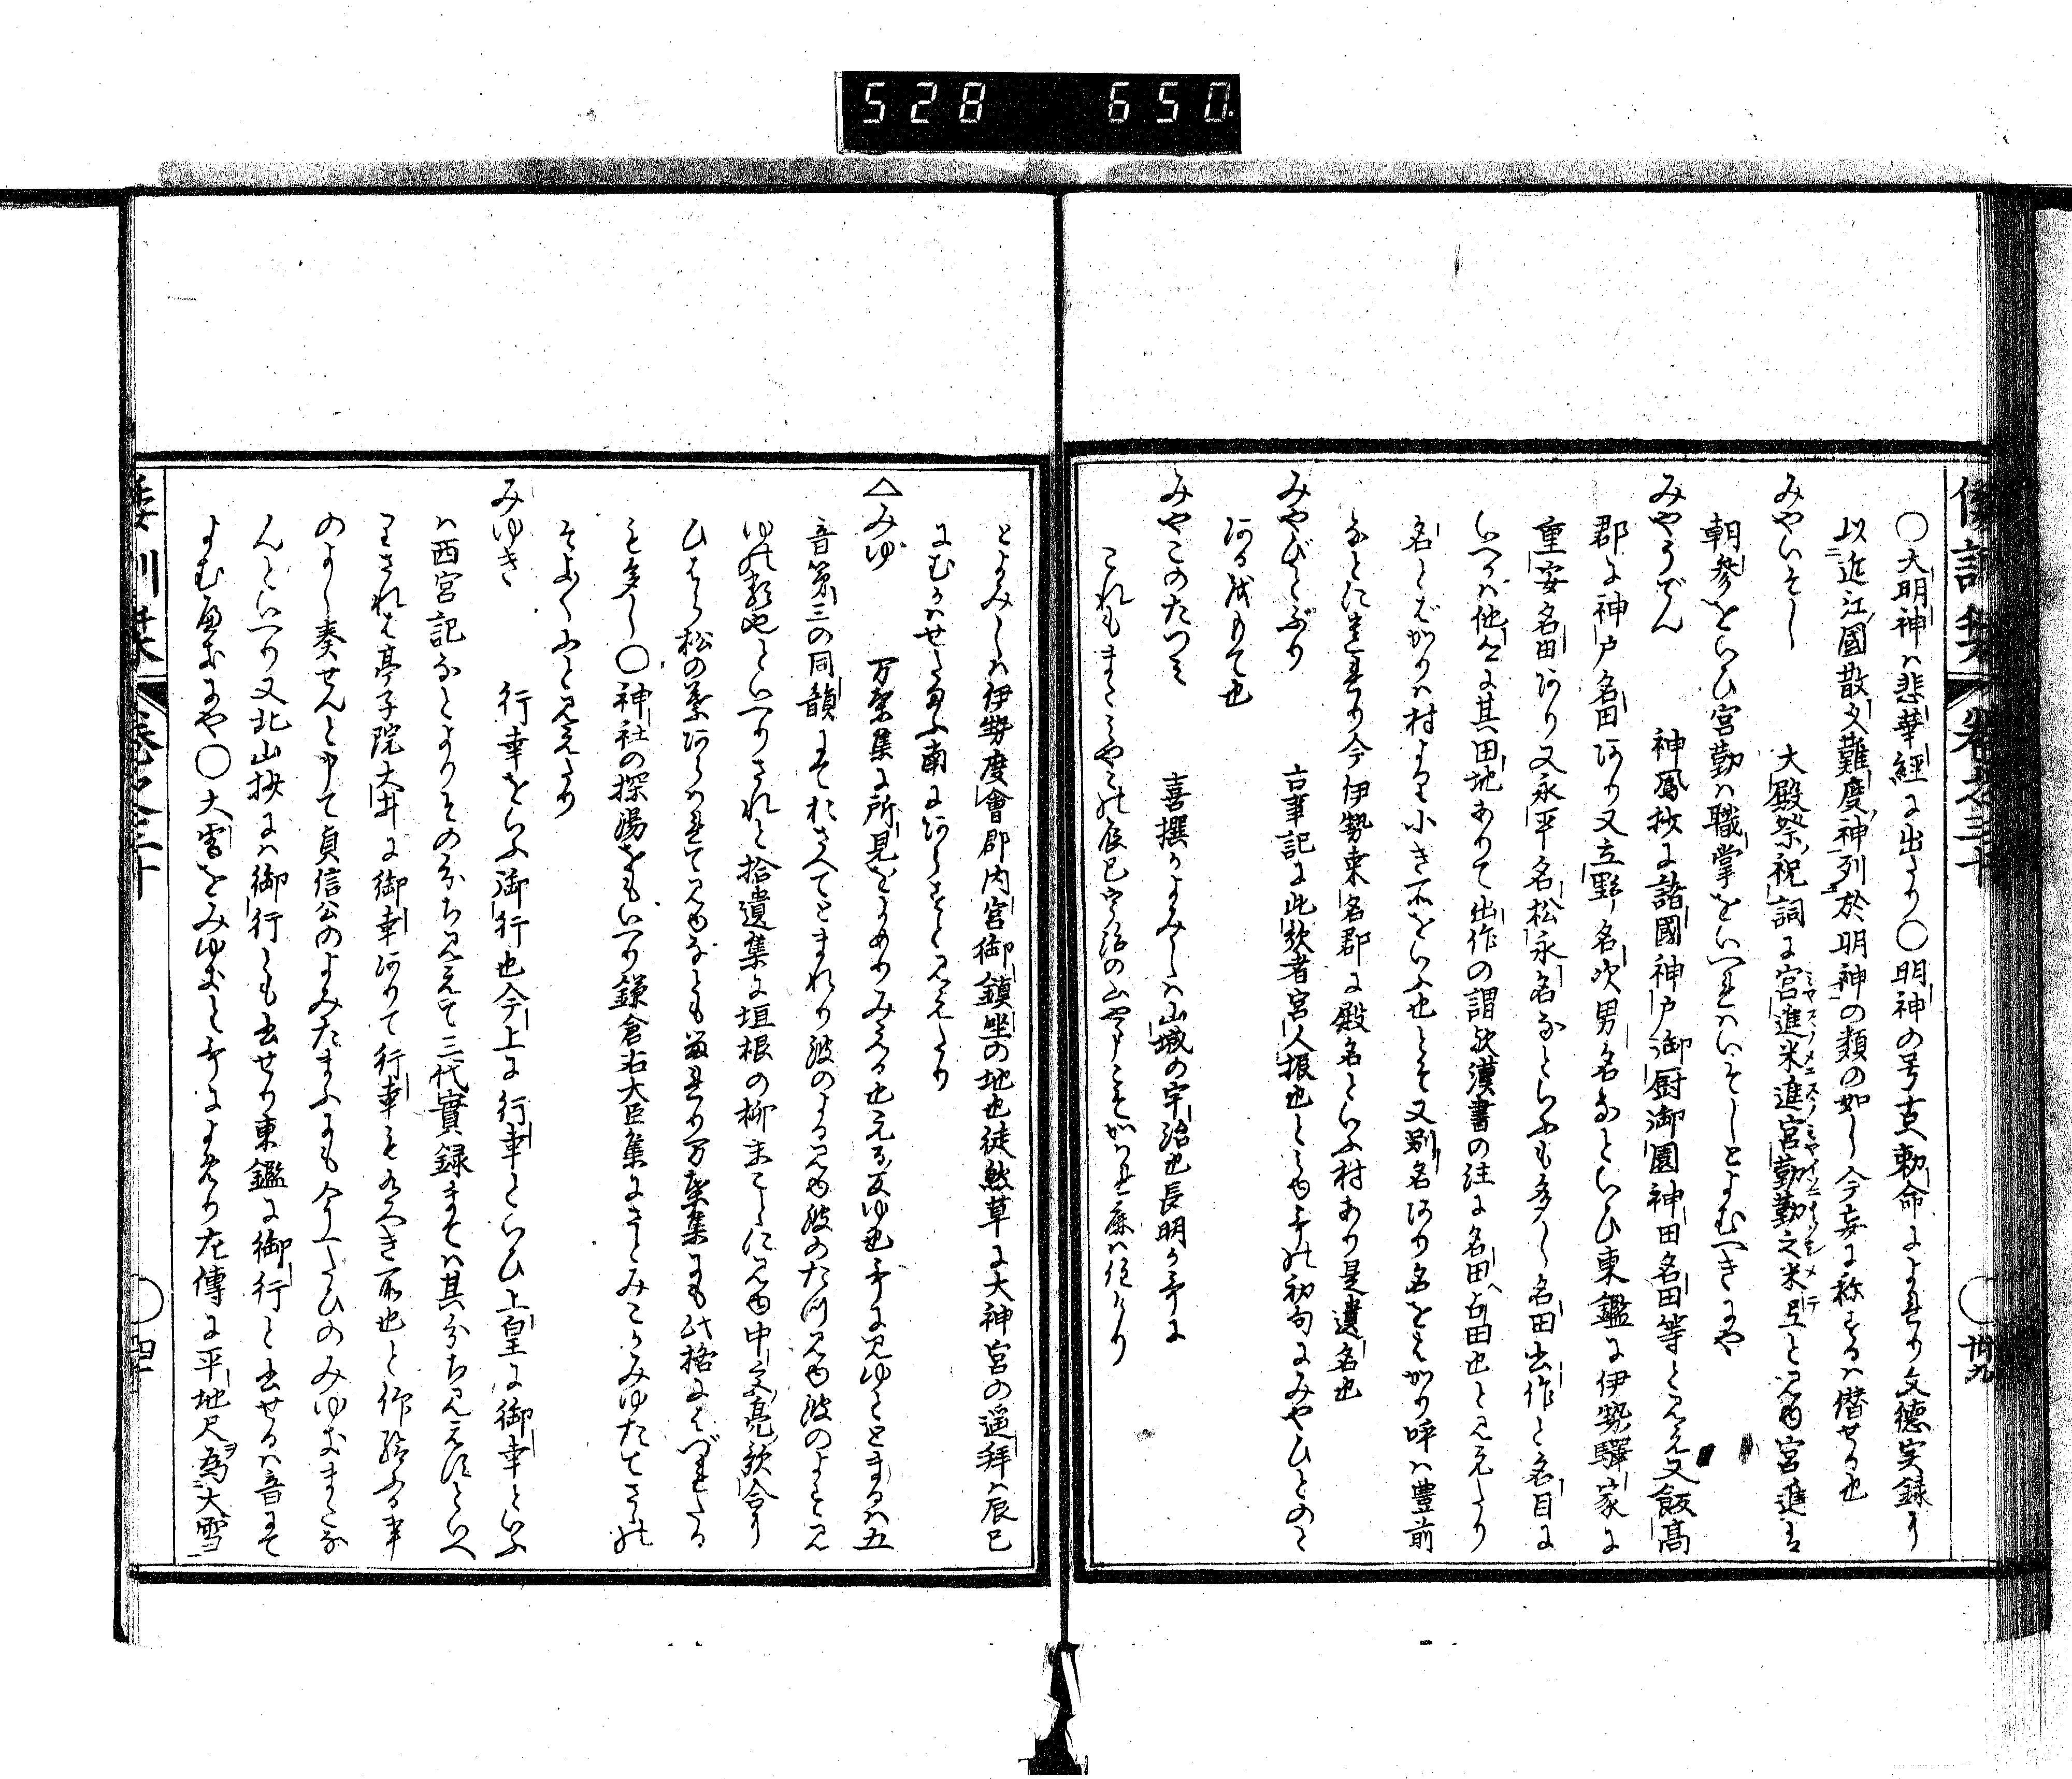 528 650
倭訓栞 卷之三十 卅九
○大明神ハ悲華經に出たり○明神の号古人勅命によれり文徳実録に
以近江國散久難度神列於明神の類の如し今妄に称するハ僣せる也
みやいそし 大殿祭祝詞に宮進米進宮勤勤之米旦と見ゆ宮進は
朝參をいひ宮勤ハ職掌をいへれハいそしとよむへきにや
みやうでん 神鳳抄に諸國神戸御厨御園神田名田等と見え又飯高
郡に神戸名田あり又立野名次男名なといひ東鑑に伊勢驛家に
重安名田あり又永平名松永名なといふも多し名田出作と名目に
いへるハ他人に其田地ありて出作の謂歟漢書の注に名田ハ占田也と見えたり
名とばかりハ村より小き所をいふ也とそ又別名あり名をはかり呼ハ豊前
なとに遺れり今伊勢東名郡に殿名といふ村あり是遺名也
みやびとぶり 古事記に此歌者宮人振也とみゆ歌の初句にみやひとのと
ある成もて也
みやこのたつみ 喜撰かよみしハ山城の宇治也長明か歌に
これもまたみやこの辰巳宇治の山やまこそかはれ庵ハ住けり
とよみしハ伊勢度會郡内宮御鎮坐の地也徒然草に大神宮の遥拜ハ辰巳
にむかハせたまふ南にあらすと見えたり
△みゆ 万葉集に所見をよめりみえる也える反ゆ也歌に見ゆととまるハ五
音第三の同韻にておさへてとまれり波のよる見ゆ波のたつ見ゆ波のよるを見
ゆの類也といへりされと拾遺集に垣根の柳まことに見ゆ中文亮歌合に
ひはら松の葉あらハれて見ゆなとも留れり万葉集にも此格にはづれたる
も多し○神社の探湯をもいへり鎌倉右大臣集にさとみこかみゆたてさゝの
そよ〱にと見えたり
みゆき 行幸をいふ御行也今上に行幸といひ上皇に御幸といふ
ハ西宮記なとよりその分ち見えて三代實録まてハ其分ち見えすといへ
りされは亭子院大井に御幸ありて行幸もあへき所也と仰給ふる事
のよし奏せんと申て貞信公のよみたまふにも今一たひのみゆきまたな
んといへり又北山抄にハ御行とも書せり東鑑に御行と書せるハ音にて
よむへきにや○大雪をみゆきと歌によめり左傳に平地尺為大雪
倭訓栞 卷之三十 四十